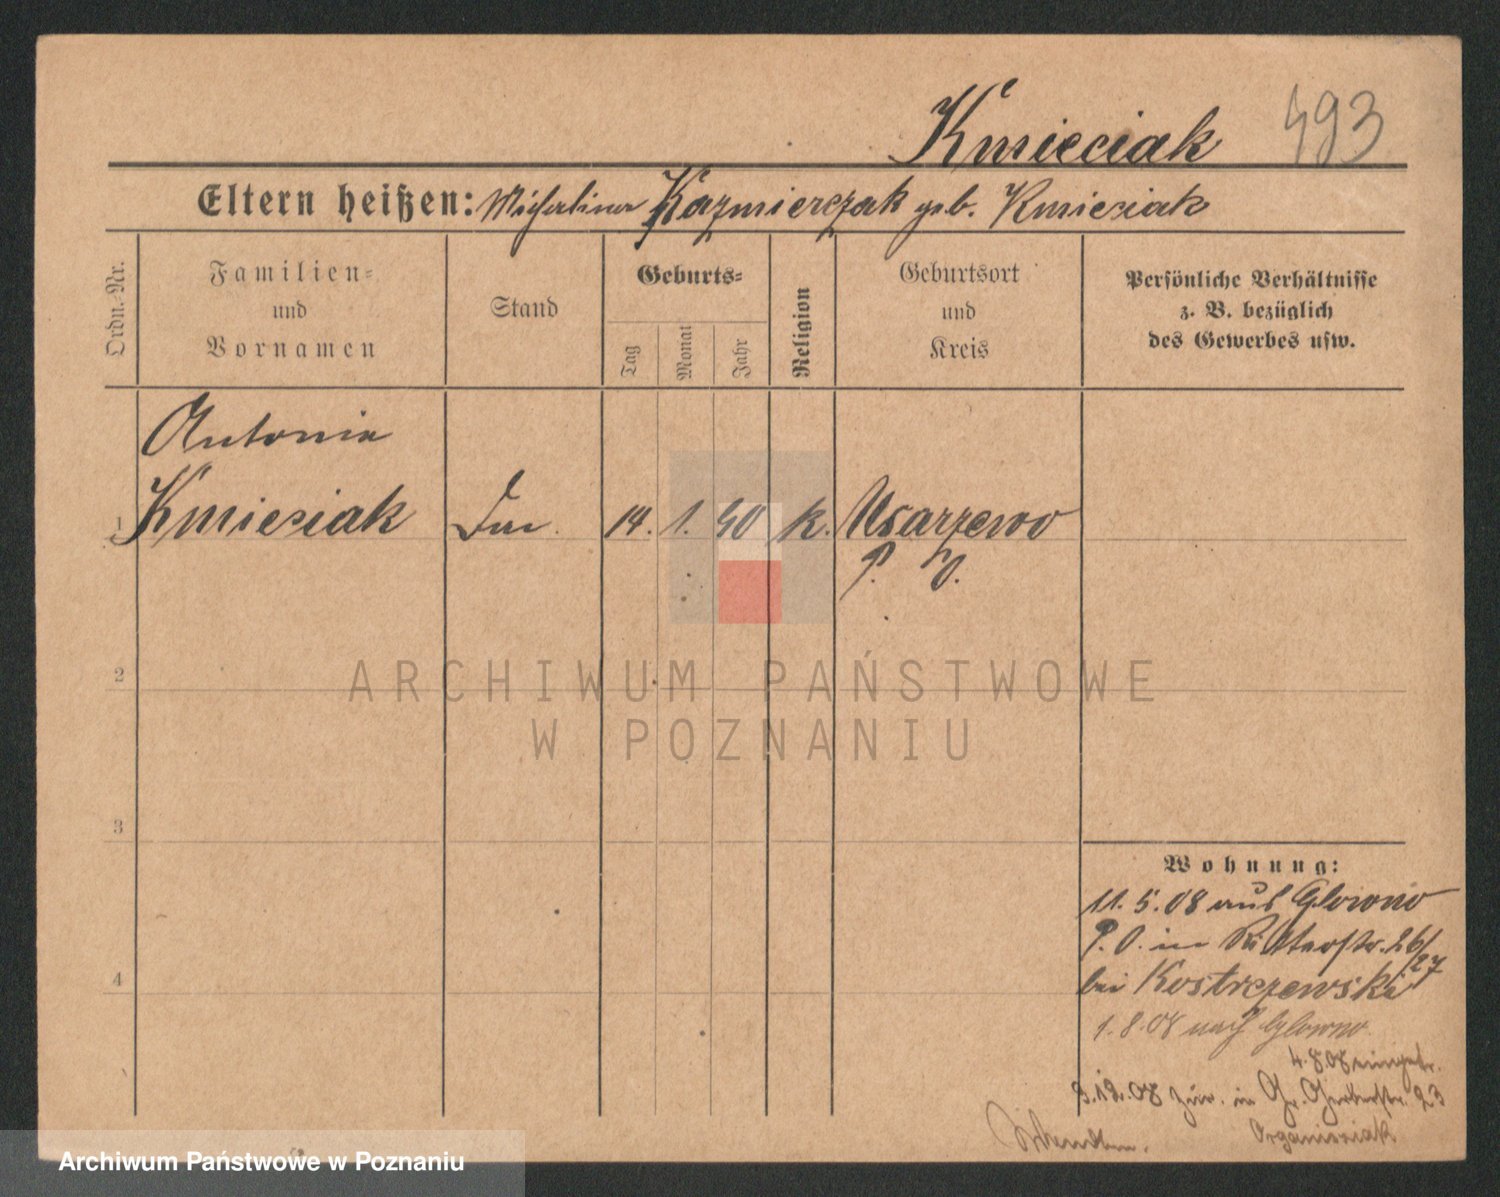 Kmieciak 493
Eltern heißen: Kazmierczak geb. Kmieciak
Ordn. Nr.
Familien-
und
Vornamen
Stand
Geburts-
Tag
Monat
Jahr
Religion
Geburtsort
und
Kreis
Persönliche Verhältnisse
z. B. bezüglich
des Gewerbes usw.
Antonie
1 Kmieciak 14. 1. 90 k. Usarzewo
P. O.
2
3
4
Wohnung:
11. 5. 08 aus Glowno
P. O. in Ritterstr. 26/27
bei Kostrzewski
1. 8. 08 nach Glowno
4. 8. 08 eingetr.
3. 12. 08 zur. in Gr. Gerberstr. 23
ARCHIWUM PAŃSTWOWE
W POZNANIU
Archiwum Państwowe w Poznaniu